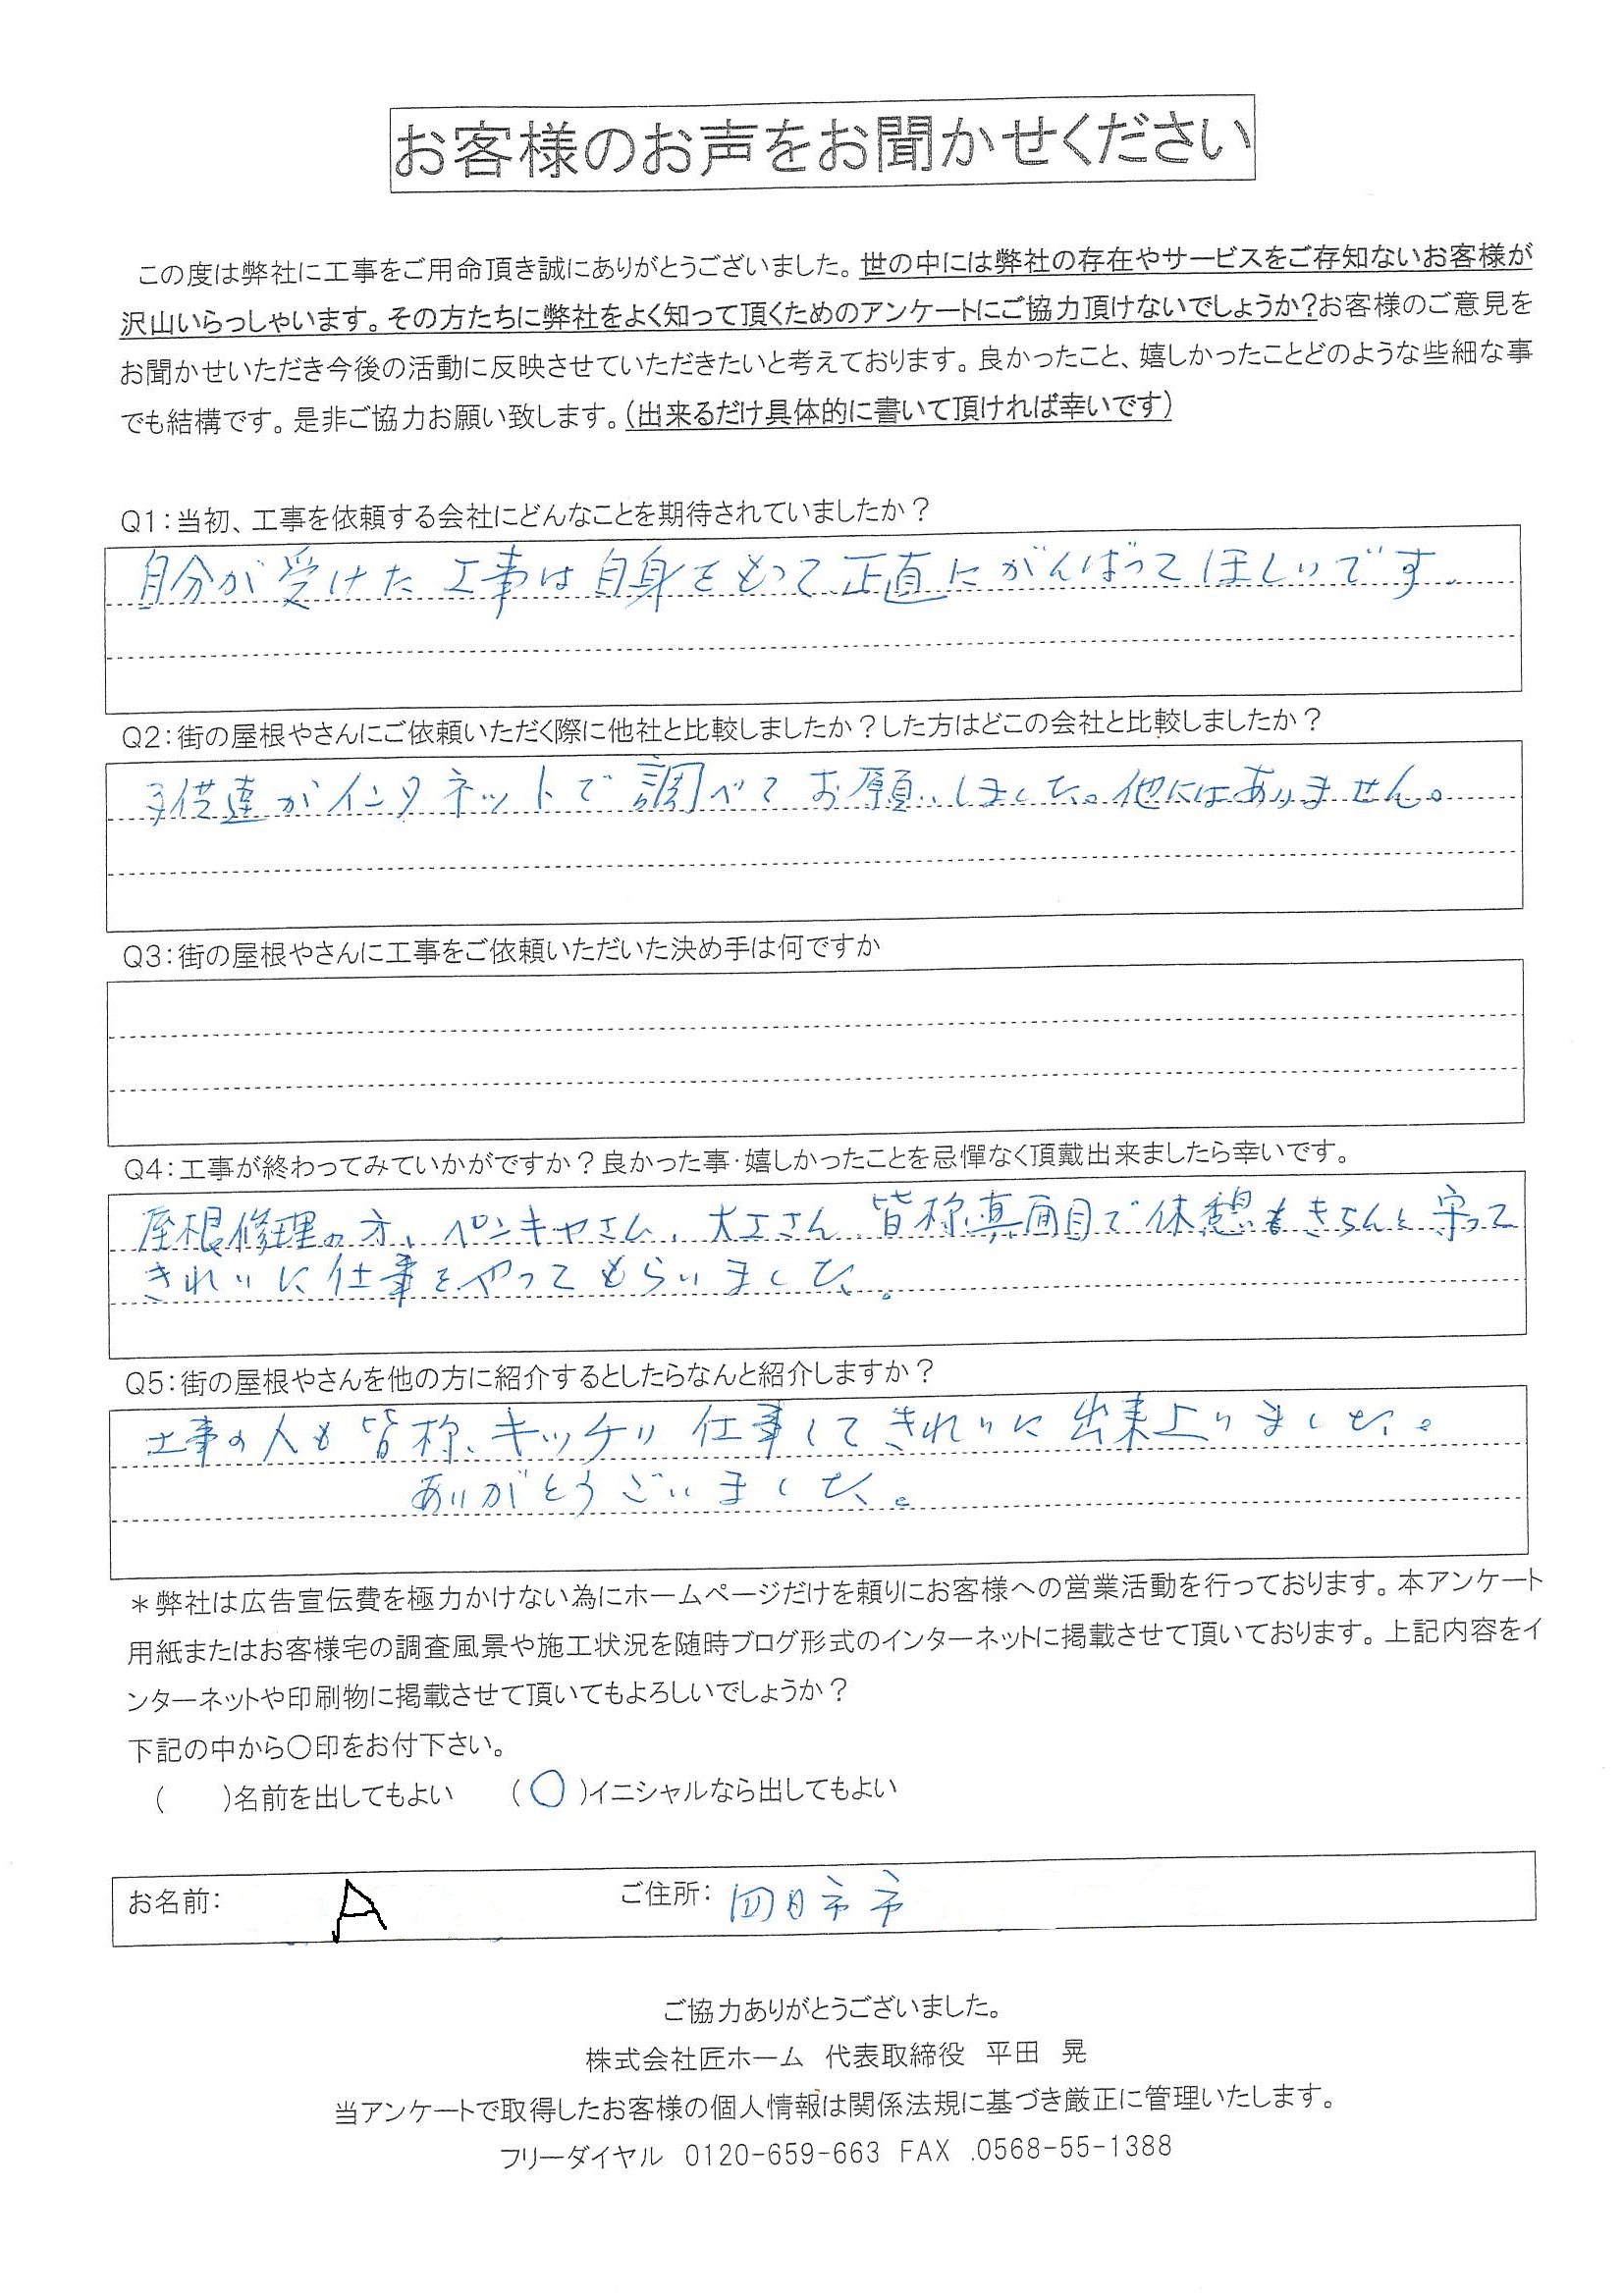 お客様のお声をお聞かせください
この度は弊社に工事をご用命頂き誠にありがとうございました。世の中には弊社の存在やサービスをご存知ないお客様が
沢山いらっしゃいます。その方たちに弊社をよく知って頂くためのアンケートにご協力頂けないでしょうか?お客様のご意見を
お聞かせいただき今後の活動に反映させていただきたいと考えております。良かったこと、嬉しかったことどのような些細な事
でも結構です。是非ご協力お願い致します。(出来るだけ具体的に書いて頂ければ幸いです)
Q1:当初、工事を依頼する会社にどんなことを期待されていましたか?
自分が受けた工事は自身をもって正直にがんばってほしいです.
Q2:街の屋根やさんにご依頼いただく際に他社と比較しましたか?した方はどこの会社と比較しましたか?
子供達がインタネットで調べてお願いしました。他にはありません。
Q3:街の屋根やさんに工事をご依頼いただいた決め手は何ですか
Q4:工事が終わってみていかがですか?良かった事・嬉しかったことを忌憚なく頂戴出来ましたら幸いです。
屋根修理の方、ペンキヤさん、大工さん、皆称真面目で休憩もきちんと守って
きれいに仕事をやってもらいました。
Q5:街の屋根やさんを他の方に紹介するとしたらなんと紹介しますか?
工事の人も皆称、キッチリ仕事してきれいに出来上りました。
ありがとうございました。
＊弊社は広告宣伝費を極力かけない為にホームページだけを頼りにお客様への営業活動を行っております。本アンケート
用紙またはお客様宅の調査風景や施工状況を随時ブログ形式のインターネットに掲載させて頂いております。上記内容をイ
ンターネットや印刷物に掲載させて頂いてもよろしいでしょうか?
下記の中から〇印をお付下さい。
(　　)名前を出してもよい　　(〇)イニシャルなら出してもよい
お名前: A　ご住所: 四日市市
ご協力ありがとうございました。
株式会社匠ホーム　代表取締役　平田　晃
当アンケートで取得したお客様の個人情報は関係法規に基づき厳正に管理いたします。
フリーダイヤル 0120-659-663 FAX .0568-55-1388